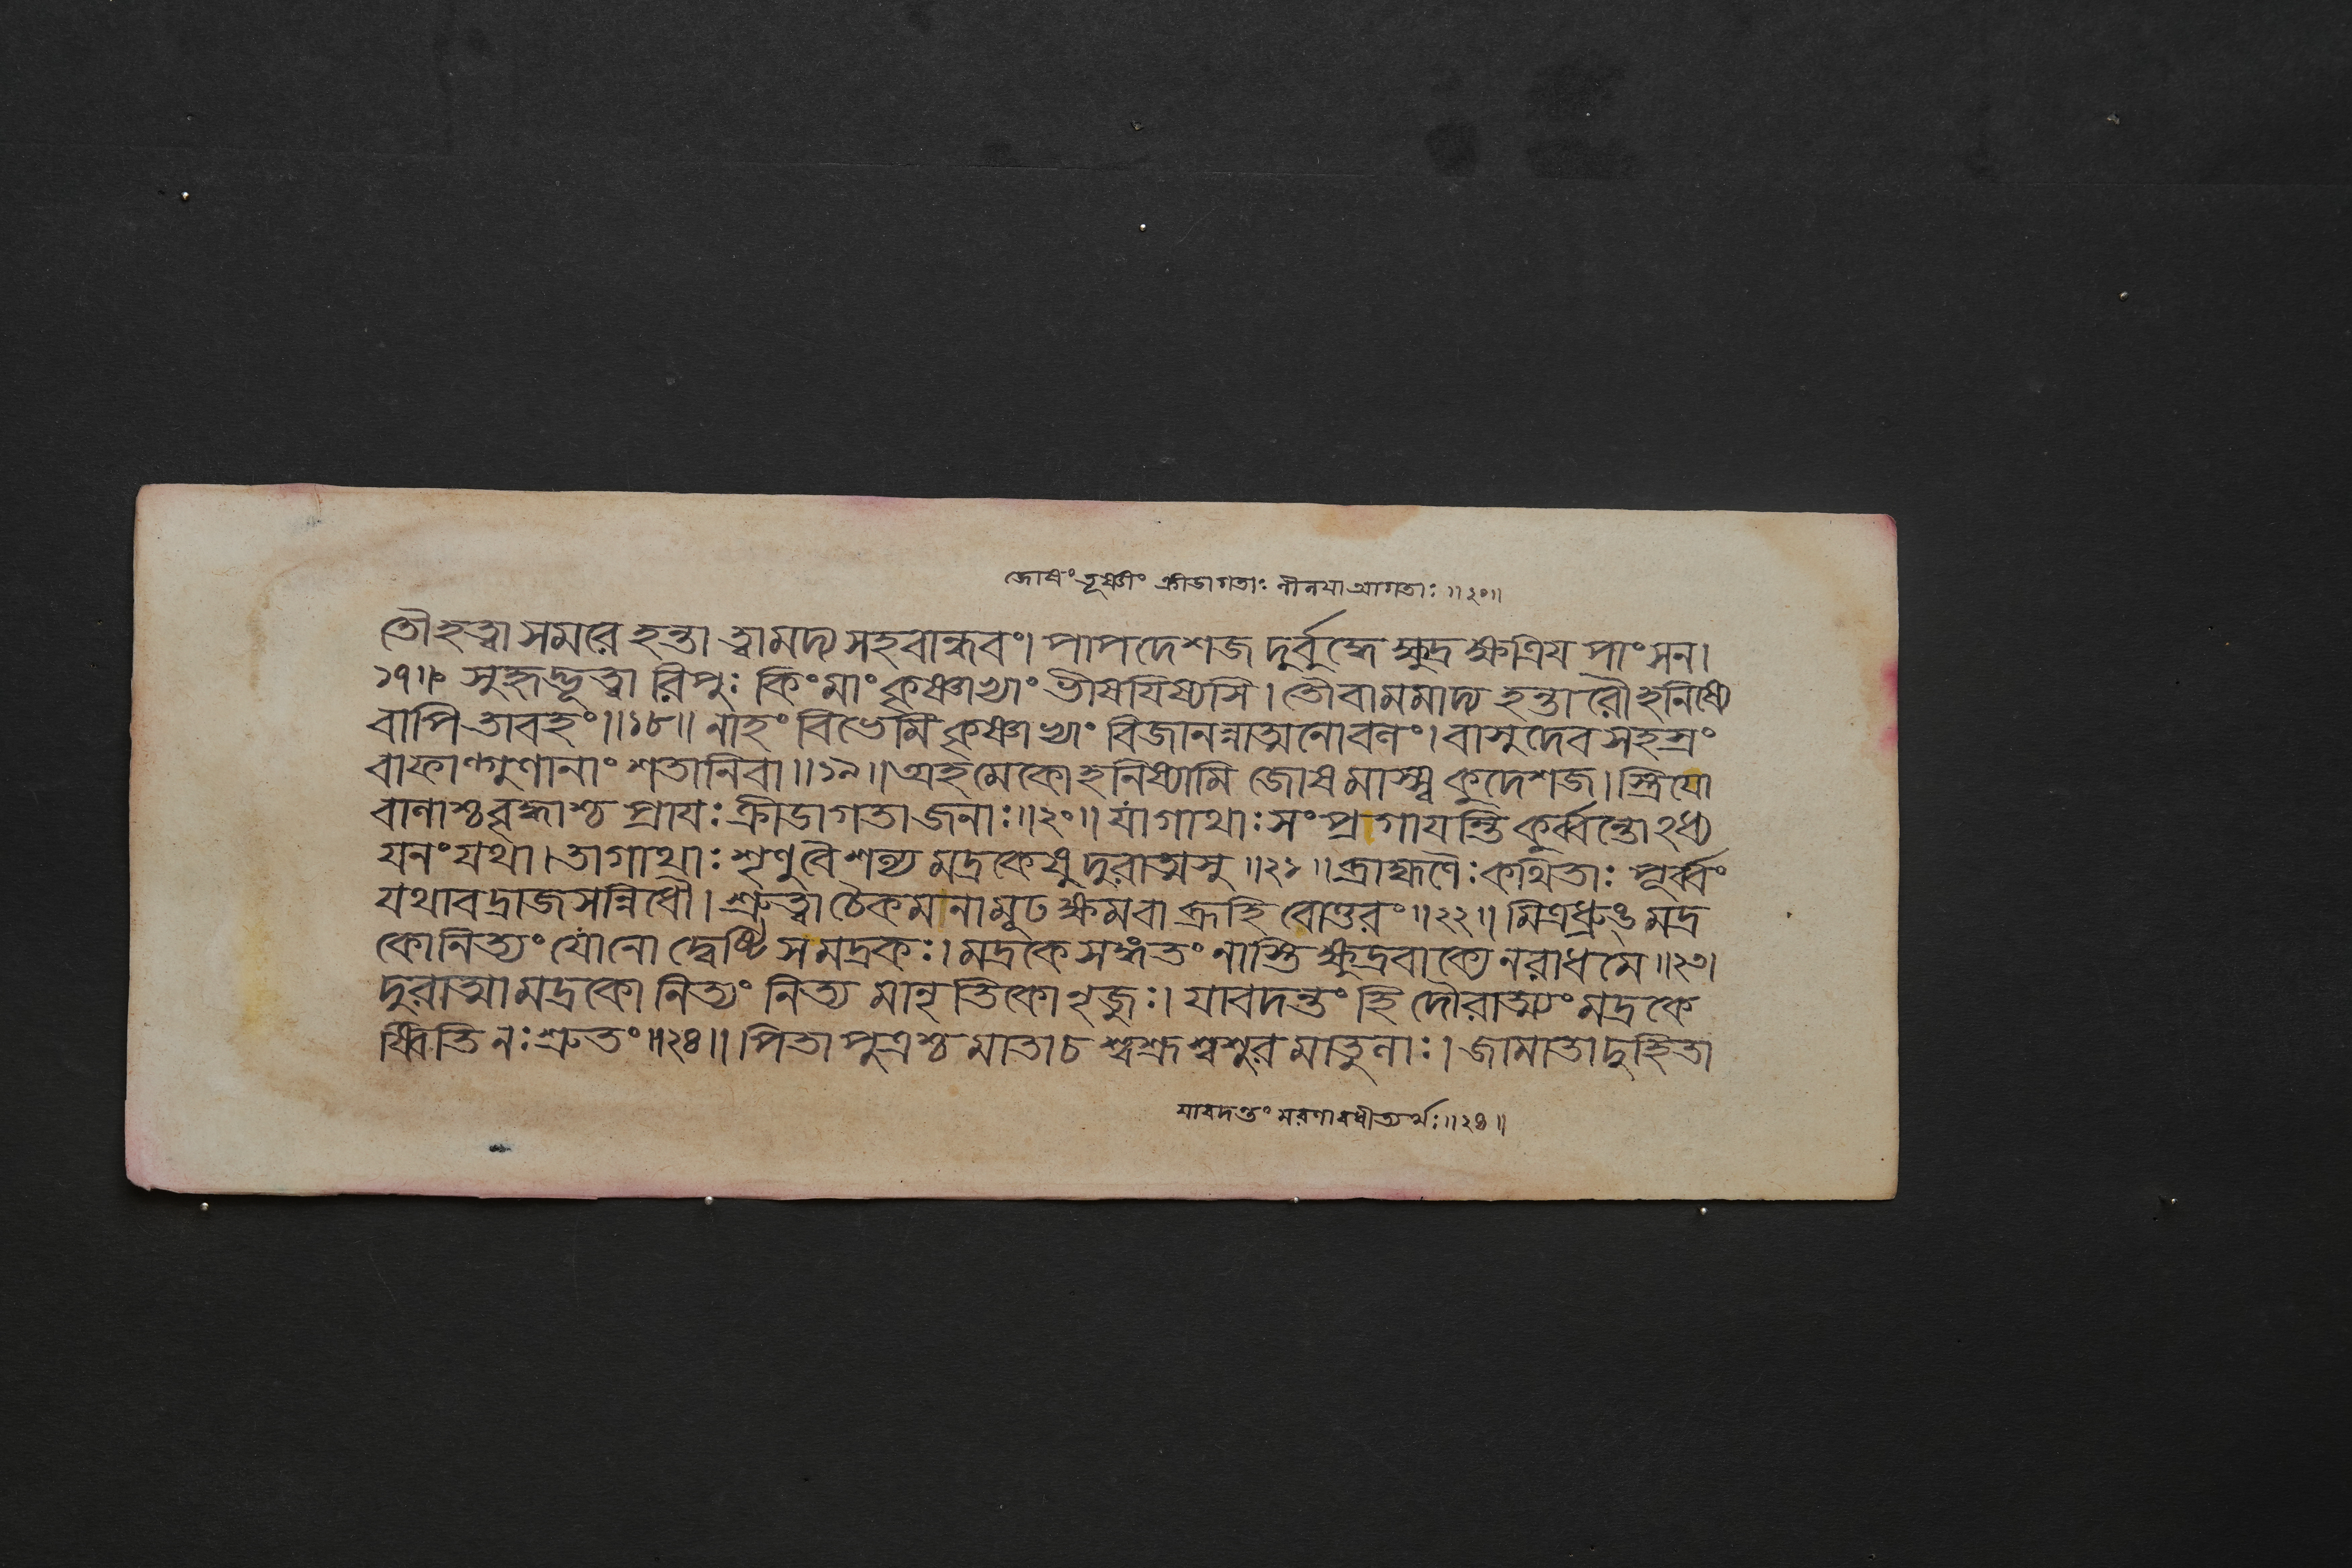 জোষং তূষ্ণীং ক্রীডাগতাঃ লীলযা আগতাঃ ॥২০॥
তৌ হত্বা সমরে হন্তা ত্বামদ্য সহবান্ধবং। পাপদেশজ দুর্বুদ্ধে ক্ষুদ্র ক্ষত্রিয পাংসন।
১৭॥ সুহৃদ্ভূত্বা রিপুঃ কিং মাং কৃষ্ণাভ্যাং ভীষযিষ্যসি। তৌ বা মমাদ্য হন্তারৌ হনিষ্যে
বাপি তাবহং॥১৮॥ নাহং বিভেমি কৃষ্ণাভ্যাং বিজানন্নাত্মনো বলং। বাসুদেব সহস্রং
বা ফাল্গুণানাং শতানি বা॥১৯॥ অহমেকো হনিষ্যামি জোষমাস্স্ব কুদেশজ। স্ত্রিযো
বালাশ্চ বৃদ্ধাশ্চ প্রাযঃ ক্রীডাগতা জনাঃ॥২০॥ যাং গাথাঃ সংপ্রগাযন্তি কুর্ব্বন্তোঽধ্য
যনং যথা। তা গাথাঃ শৃণু বৈ শল্য মদ্রকেষু দুরাত্মসু॥২১॥ ব্রাহ্মণৈঃ কথিতাঃ পূর্ব্বং
যথাবদ্রাজসন্নিধৌ। শ্রুত্বা চৈকমনা মূঢ ক্ষম বা ব্রূহি বোত্তরং॥২২॥ মিত্রধ্রুঙ্ মদ্র
কো নিত্যং যো নো দ্বেষ্টি স মদ্রকঃ। মদ্রকে সঙ্গতং নাস্তি ক্ষুদ্রবাক্যে নরাধমে॥২৩।
দুরাত্মা মদ্রকো নিত্যং নিত্য মানৃতিকো ঽনৃজুঃ। যাবদন্তং হি দৌরাত্ম্যং মদ্রকে
ষ্বিতি নঃ শ্রুতং॥২৪॥ পিতা পুত্রশ্চ মাতা চ শ্বশ্রূ শ্বশুর মাতুলাঃ। জামাতা দুহিতা
যাবদন্তং মরণাবধীত্যর্থঃ॥২৪॥